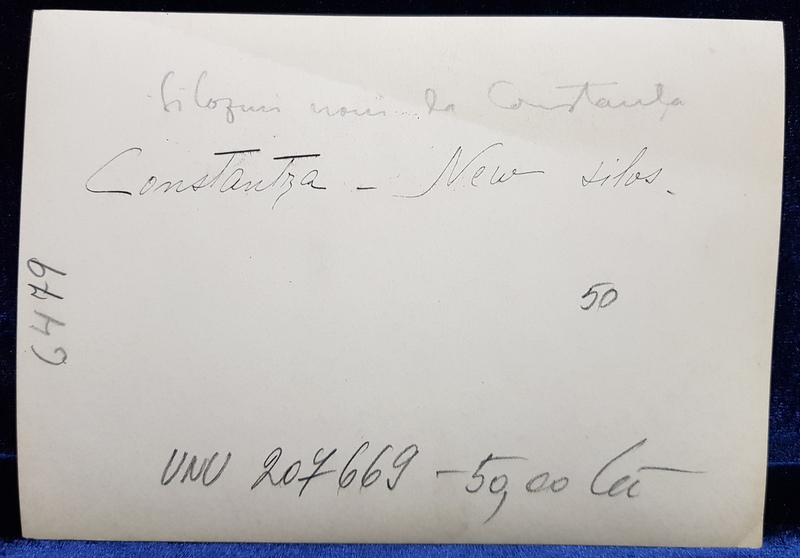 Silozuri noui la Constanţa
Constantza - New silos.
6479
50
UNU 207669 - 50,00 lei